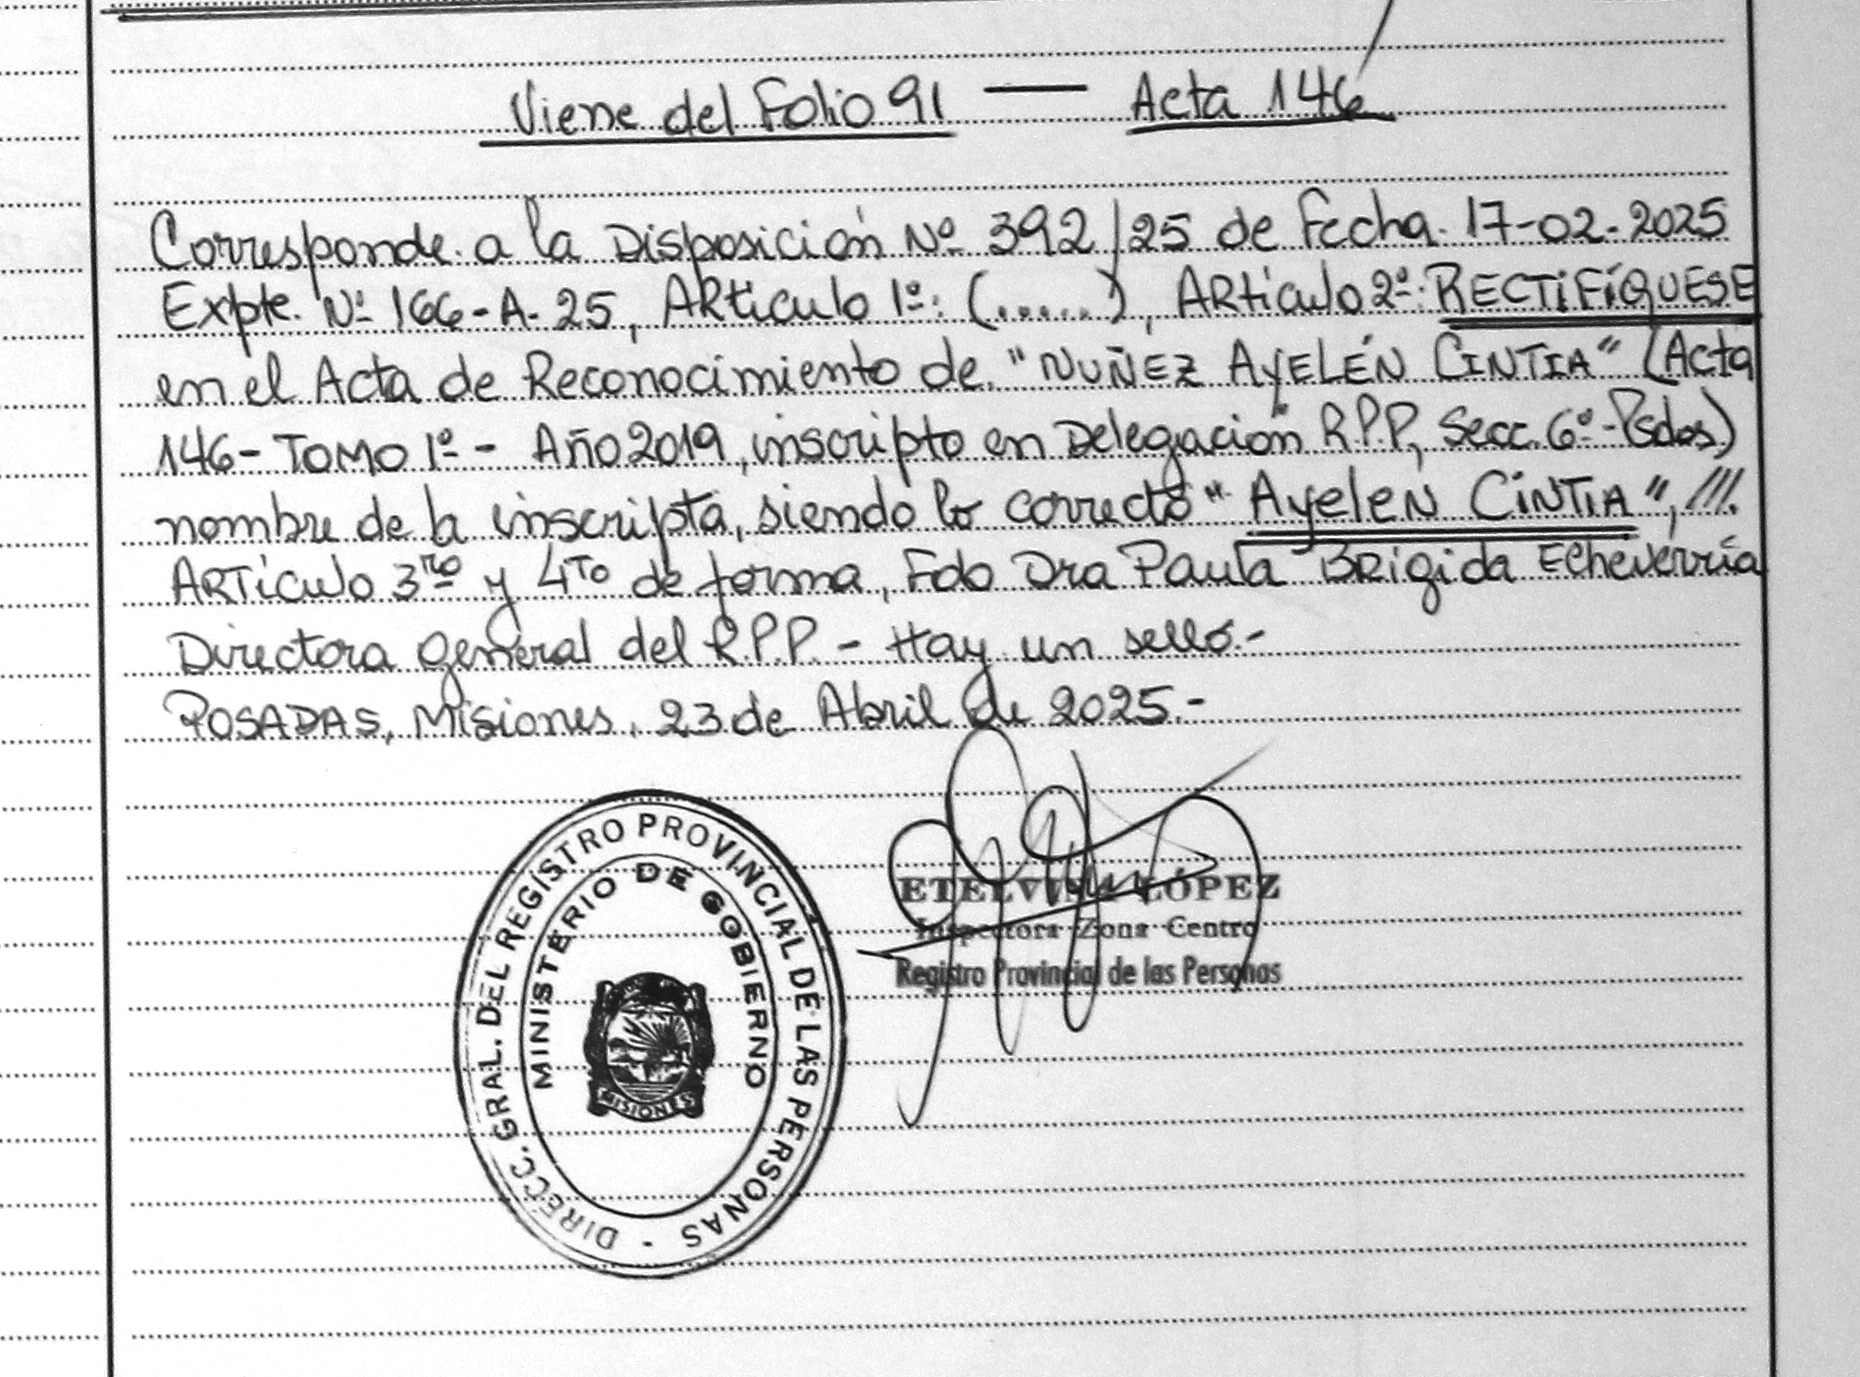 Viene del Folio 91 — Acta 146
Corresponde a la Disposición Nº 392/25 de Fecha. 17-02-2025
Expte. Nº 166-A-25, Articulo 1º: (.....), Artículo 2º: RECTIFÍQUESE
en el Acta de Reconocimiento de "NUÑEZ AYELÉN CINTIA" (Acta
146- TOMO 1º - Año 2019, inscripto en Delegación R.P.P, Secc. 6º-Psdas)
nombre de la inscripta, siendo lo correcto "Ayelen CINTIA", ///.
ARTICulo 3ro y 4To de forma, Fdo Dra Paula Brigida Echeverría
Directora General del R.P.P. - Hay un sello.-
POSADAS, Misiones, 23 de Abril de 2025.-
DIRECC. GRAL. DEL REGISTRO PROVINCIAL DE LAS PERSONAS
MINISTERIO DE GOBIERNO
MISIONES
ETELVINA LÓPEZ
Inspectora Zona Centro
Registro Provincial de las Personas